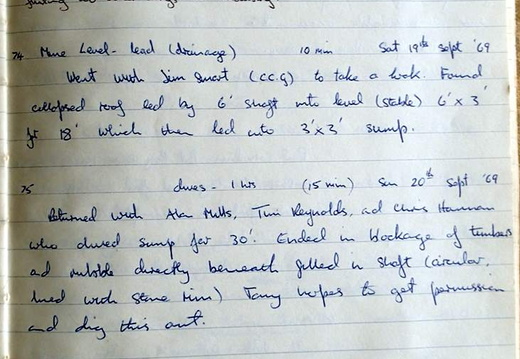 74 Mine Level - lead (drainage) 10 min Sat 19th Sept '69
Went with Jim Smart (C.C.G) to take a look. Found
collapsed roof led by 6' shaft into level (stable) 6' x 3'
for 18' which then led into 3' x 3' sump.
75 dives - 1 hrs (15 min) Sun 20th Sept '69
Returned with Alan Mills, Tim Reynolds, and Chris Hannam
who dived sump for 30'. Ended in blockage of timbers
and rubble directly beneath filled in shaft (circular,
lined with stone rim) Tony hopes to get permission
and dig this out.